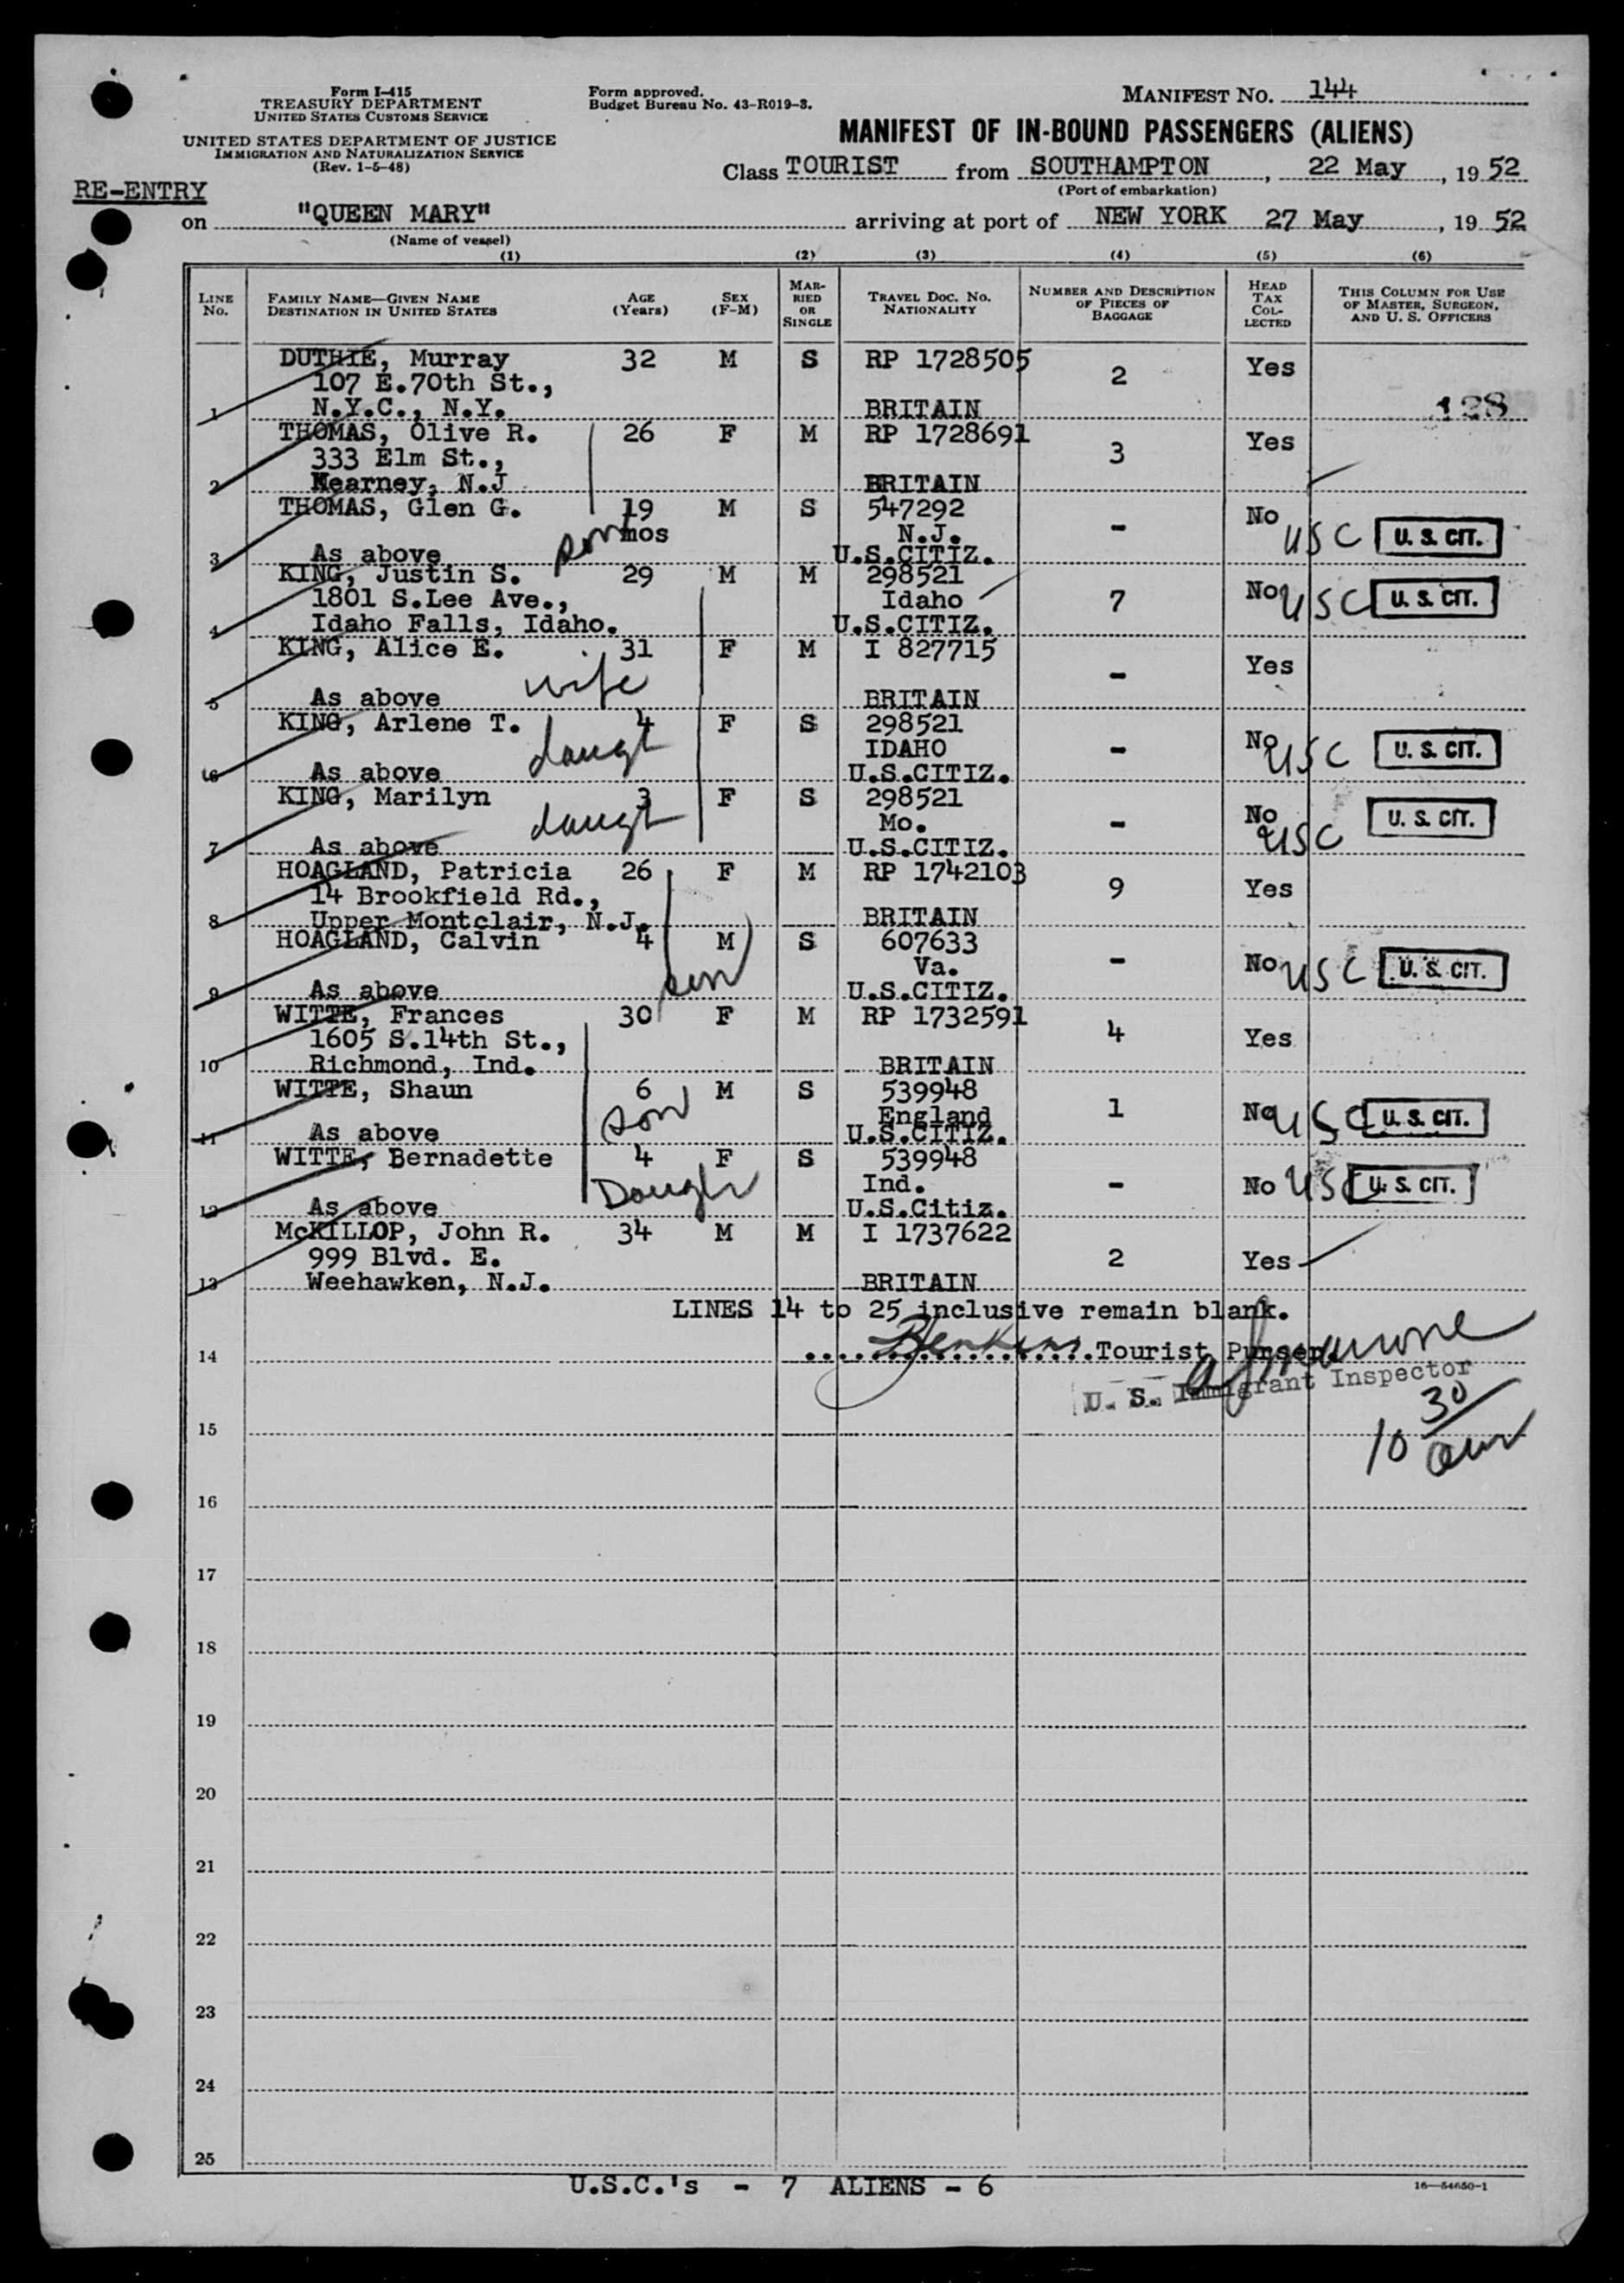 Form I-415
TREASURY DEPARTMENT
UNITED STATES CUSTOMS SERVICE
UNITED STATES DEPARTMENT OF JUSTICE
IMMIGRATION AND NATURALIZATION SERVICE
(Rev. 1-5-48)
Form approved.
Budget Bureau No. 43-R019-3.
MANIFEST NO. 144
MANIFEST OF IN-BOUND PASSENGERS (ALIENS)
Class TOURIST from SOUTHAMPTON, 22 May, 1952
(Port of embarkation)
RE-ENTRY
on "QUEEN MARY" arriving at port of NEW YORK 27 May, 1952
(Name of vessel)
(1) (2) (3) (4) (5) (6)
LINE NO. FAMILY NAME—GIVEN NAME DESTINATION IN UNITED STATES AGE (Years) SEX (F-M) MARRIED OR SINGLE TRAVEL DOC. NO. NATIONALITY NUMBER AND DESCRIPTION OF PIECES OF BAGGAGE HEAD TAX COLLECTED THIS COLUMN FOR USE OF MASTER, SURGEON, AND U. S. OFFICERS
DUTHIE, Murray 32 M S RP 1728505 2 Yes
107 E.70th St.,
1 N.Y.C., N.Y. BRITAIN 128
THOMAS, Olive R. 26 F M RP 1728691 3 Yes
333 Elm St.,
2 Kearney, N.J BRITAIN
THOMAS, Glen G. 19 mos M S 547292 - No USC U. S. CIT.
son N.J.
3 As above U.S.CITIZ.
KING, Justin S. 29 M M 298521 7 No USC U. S. CIT.
1801 S.Lee Ave., Idaho
4 Idaho Falls, Idaho. U.S.CITIZ.
KING, Alice E. 31 F M I 827715 - Yes
wife
5 As above BRITAIN
KING, Arlene T. 4 F S 298521 - No USC U. S. CIT.
daugt IDAHO
6 As above U.S.CITIZ.
KING, Marilyn 3 F S 298521 - No USC U. S. CIT.
daugt Mo.
7 As above U.S.CITIZ.
HOAGLAND, Patricia 26 F M RP 1742103 9 Yes
14 Brookfield Rd.,
8 Upper Montclair, N.J. BRITAIN
HOAGLAND, Calvin 4 M S 607633 - No USC U. S. CIT.
son Va.
9 As above U.S.CITIZ.
WITTE, Frances 30 F M RP 1732591 4 Yes
1605 S.14th St.,
10 Richmond, Ind. BRITAIN
WITTE, Shaun 6 M S 539948 1 No USC U. S. CIT.
son England
11 As above U.S.CITIZ.
WITTE, Bernadette 4 F S 539948 - No USC U. S. CIT.
Daugh Ind.
12 As above U.S.Citiz.
McKILLOP, John R. 34 M M I 1737622 2 Yes
999 Blvd. E.
13 Weehawken, N.J. BRITAIN
LINES 14 to 25 inclusive remain blank.
14 Tourist Purser.
U. S. Immigrant Inspector
10 30 am
15
16
17
18
19
20
21
22
23
24
25
U.S.C.'s - 7 ALIENS - 6
16—54650-1